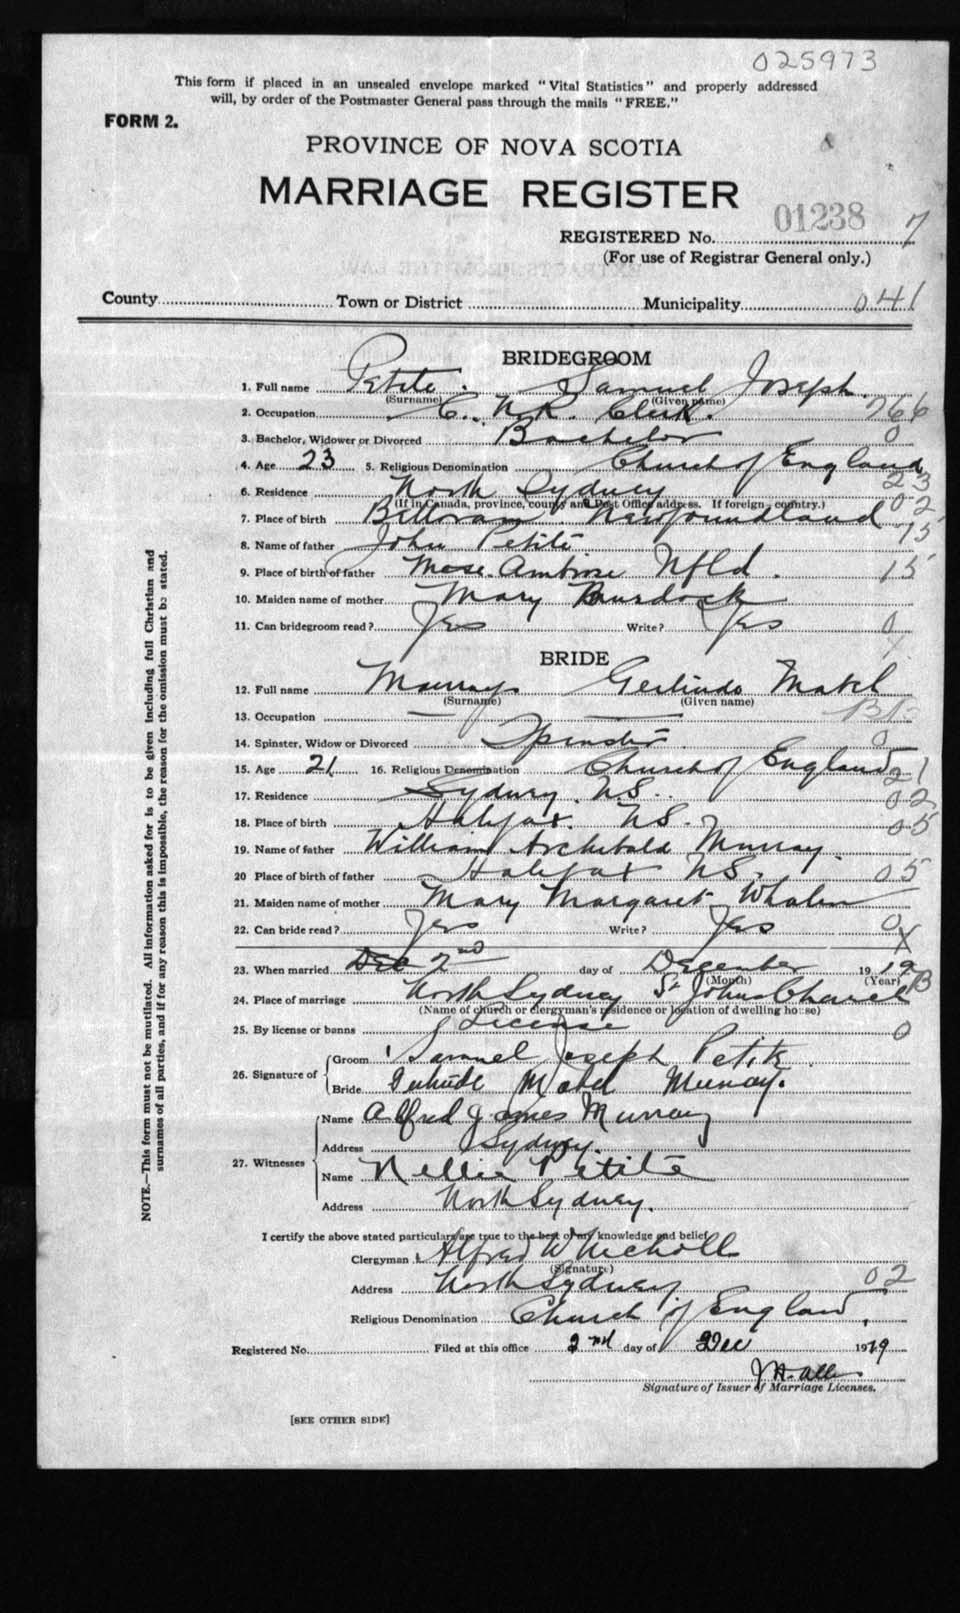 025973
This form if placed in an unsealed envelope marked "Vital Statistics" and properly addressed
will, by order of the Postmaster General pass through the mails "FREE."
FORM 2.
PROVINCE OF NOVA SCOTIA
MARRIAGE REGISTER
REGISTERED No. 01238 7
(For use of Registrar General only.)
County Town or District Municipality 041
BRIDEGROOM
1. Full name Petite. Samuel Joseph.
(Surname) (Given name)
2. Occupation C. N. R. Clerk. 766
3. Bachelor, Widower or Divorced Bachelor 0
4. Age 23 5. Religious Denomination Church of England 23
6. Residence North Sydney 02
(If in Canada, province, county and Post Office address. If foreign—country.)
7. Place of birth Newfoundland 75
8. Name of father John Petite
9. Place of birth of father Mose. Ambrose Nfld. 15
10. Maiden name of mother Mary Burdock
11. Can bridegroom read? Yes Write? Yes 0
X
BRIDE
12. Full name Murray Gertrude Mabel
(Surname) (Given name)
13. Occupation —
14. Spinster, Widow or Divorced Spinster. 0
15. Age 21 16. Religious Denomination Church of England 21
17. Residence Sydney. N.S. 02
18. Place of birth Halifax. N.S. 05
19. Name of father William Archibald Murray.
20 Place of birth of father Halifax N.S. 05
21. Maiden name of mother Mary Margaret Whalen
22. Can bride read? Yes Write? Yes 0
X
23. When married Dec 2nd day of December 19 19
(Month) (Year) B
24. Place of marriage North Sydney St Johns Church
(Name of church or clergyman's residence or location of dwelling house)
25. By license or banns License 0
26. Signature of Groom Samuel Joseph Petite
Bride Gertrude Mabel Murray.
27. Witnesses Name Alfred James Murray
Address Sydney.
Name Nellie Petite
Address North Sydney.
I certify the above stated particulars are true to the best of my knowledge and belief
Clergyman Alfred W Nicholls
(Signature)
Address North Sydney 02
Religious Denomination Church of England.
Registered No. Filed at this office 2nd day of Dec 1919
Signature of Issuer of Marriage Licenses.
[SEE OTHER SIDE]
NOTE.—This form must not be mutilated. All information asked for is to be given including full Christian and
surnames of all parties, and if for any reason this is impossible, the reason for the omission must be stated.